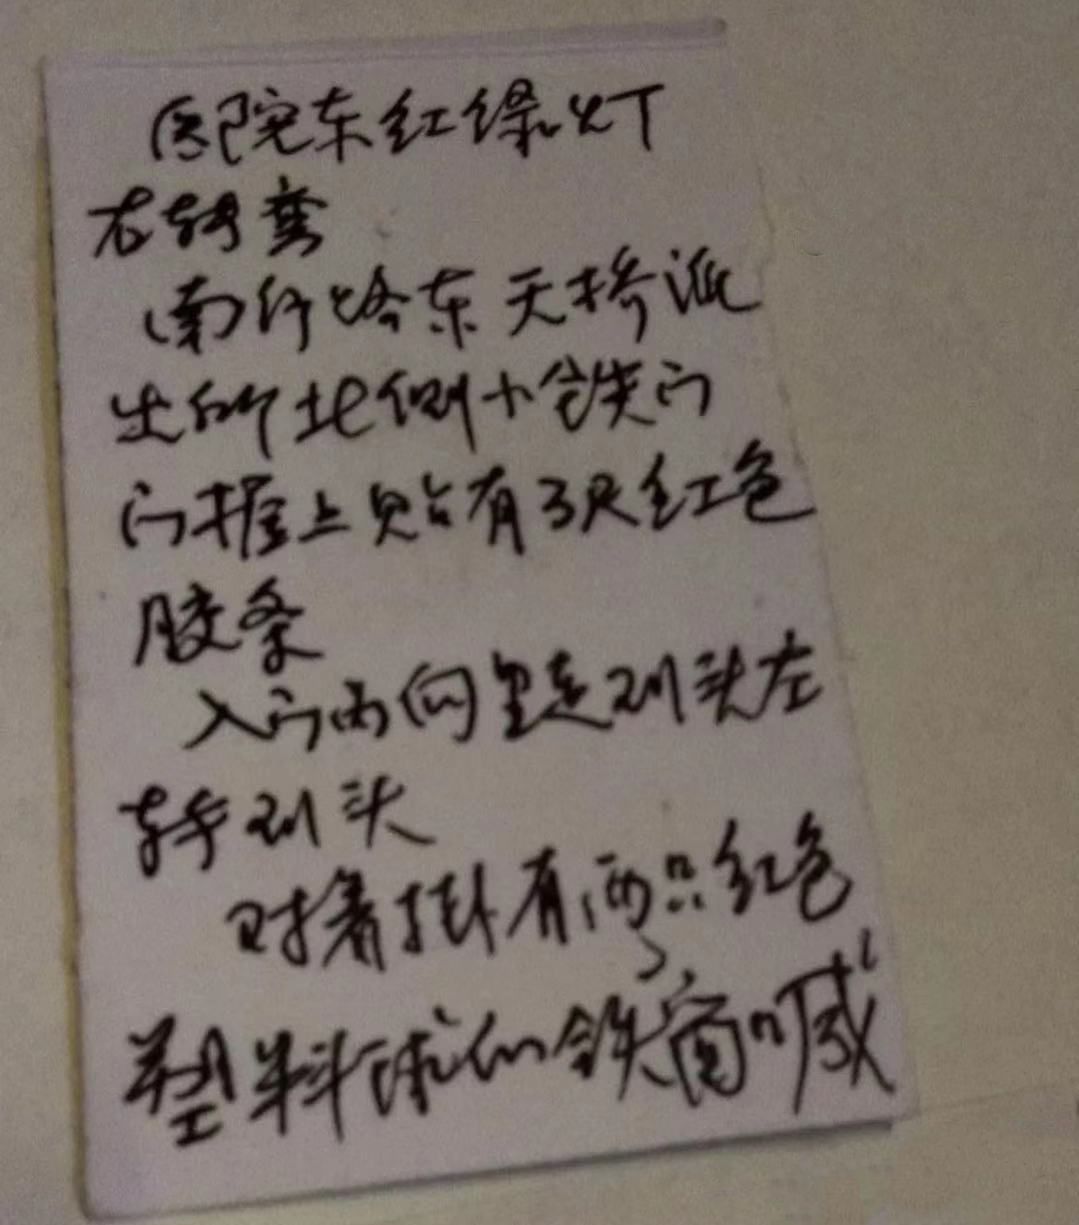 医院东红绿灯
右转弯
南行路东天桥派
出所北侧小铁门
门握上贴有3尺红色
胶条
入门向里走到头左
转到头
对着掛有两只红色
塑料球的铁窗喊